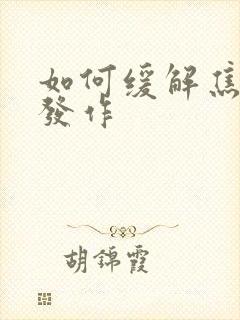 如何缓解焦
發作
胡錦霞